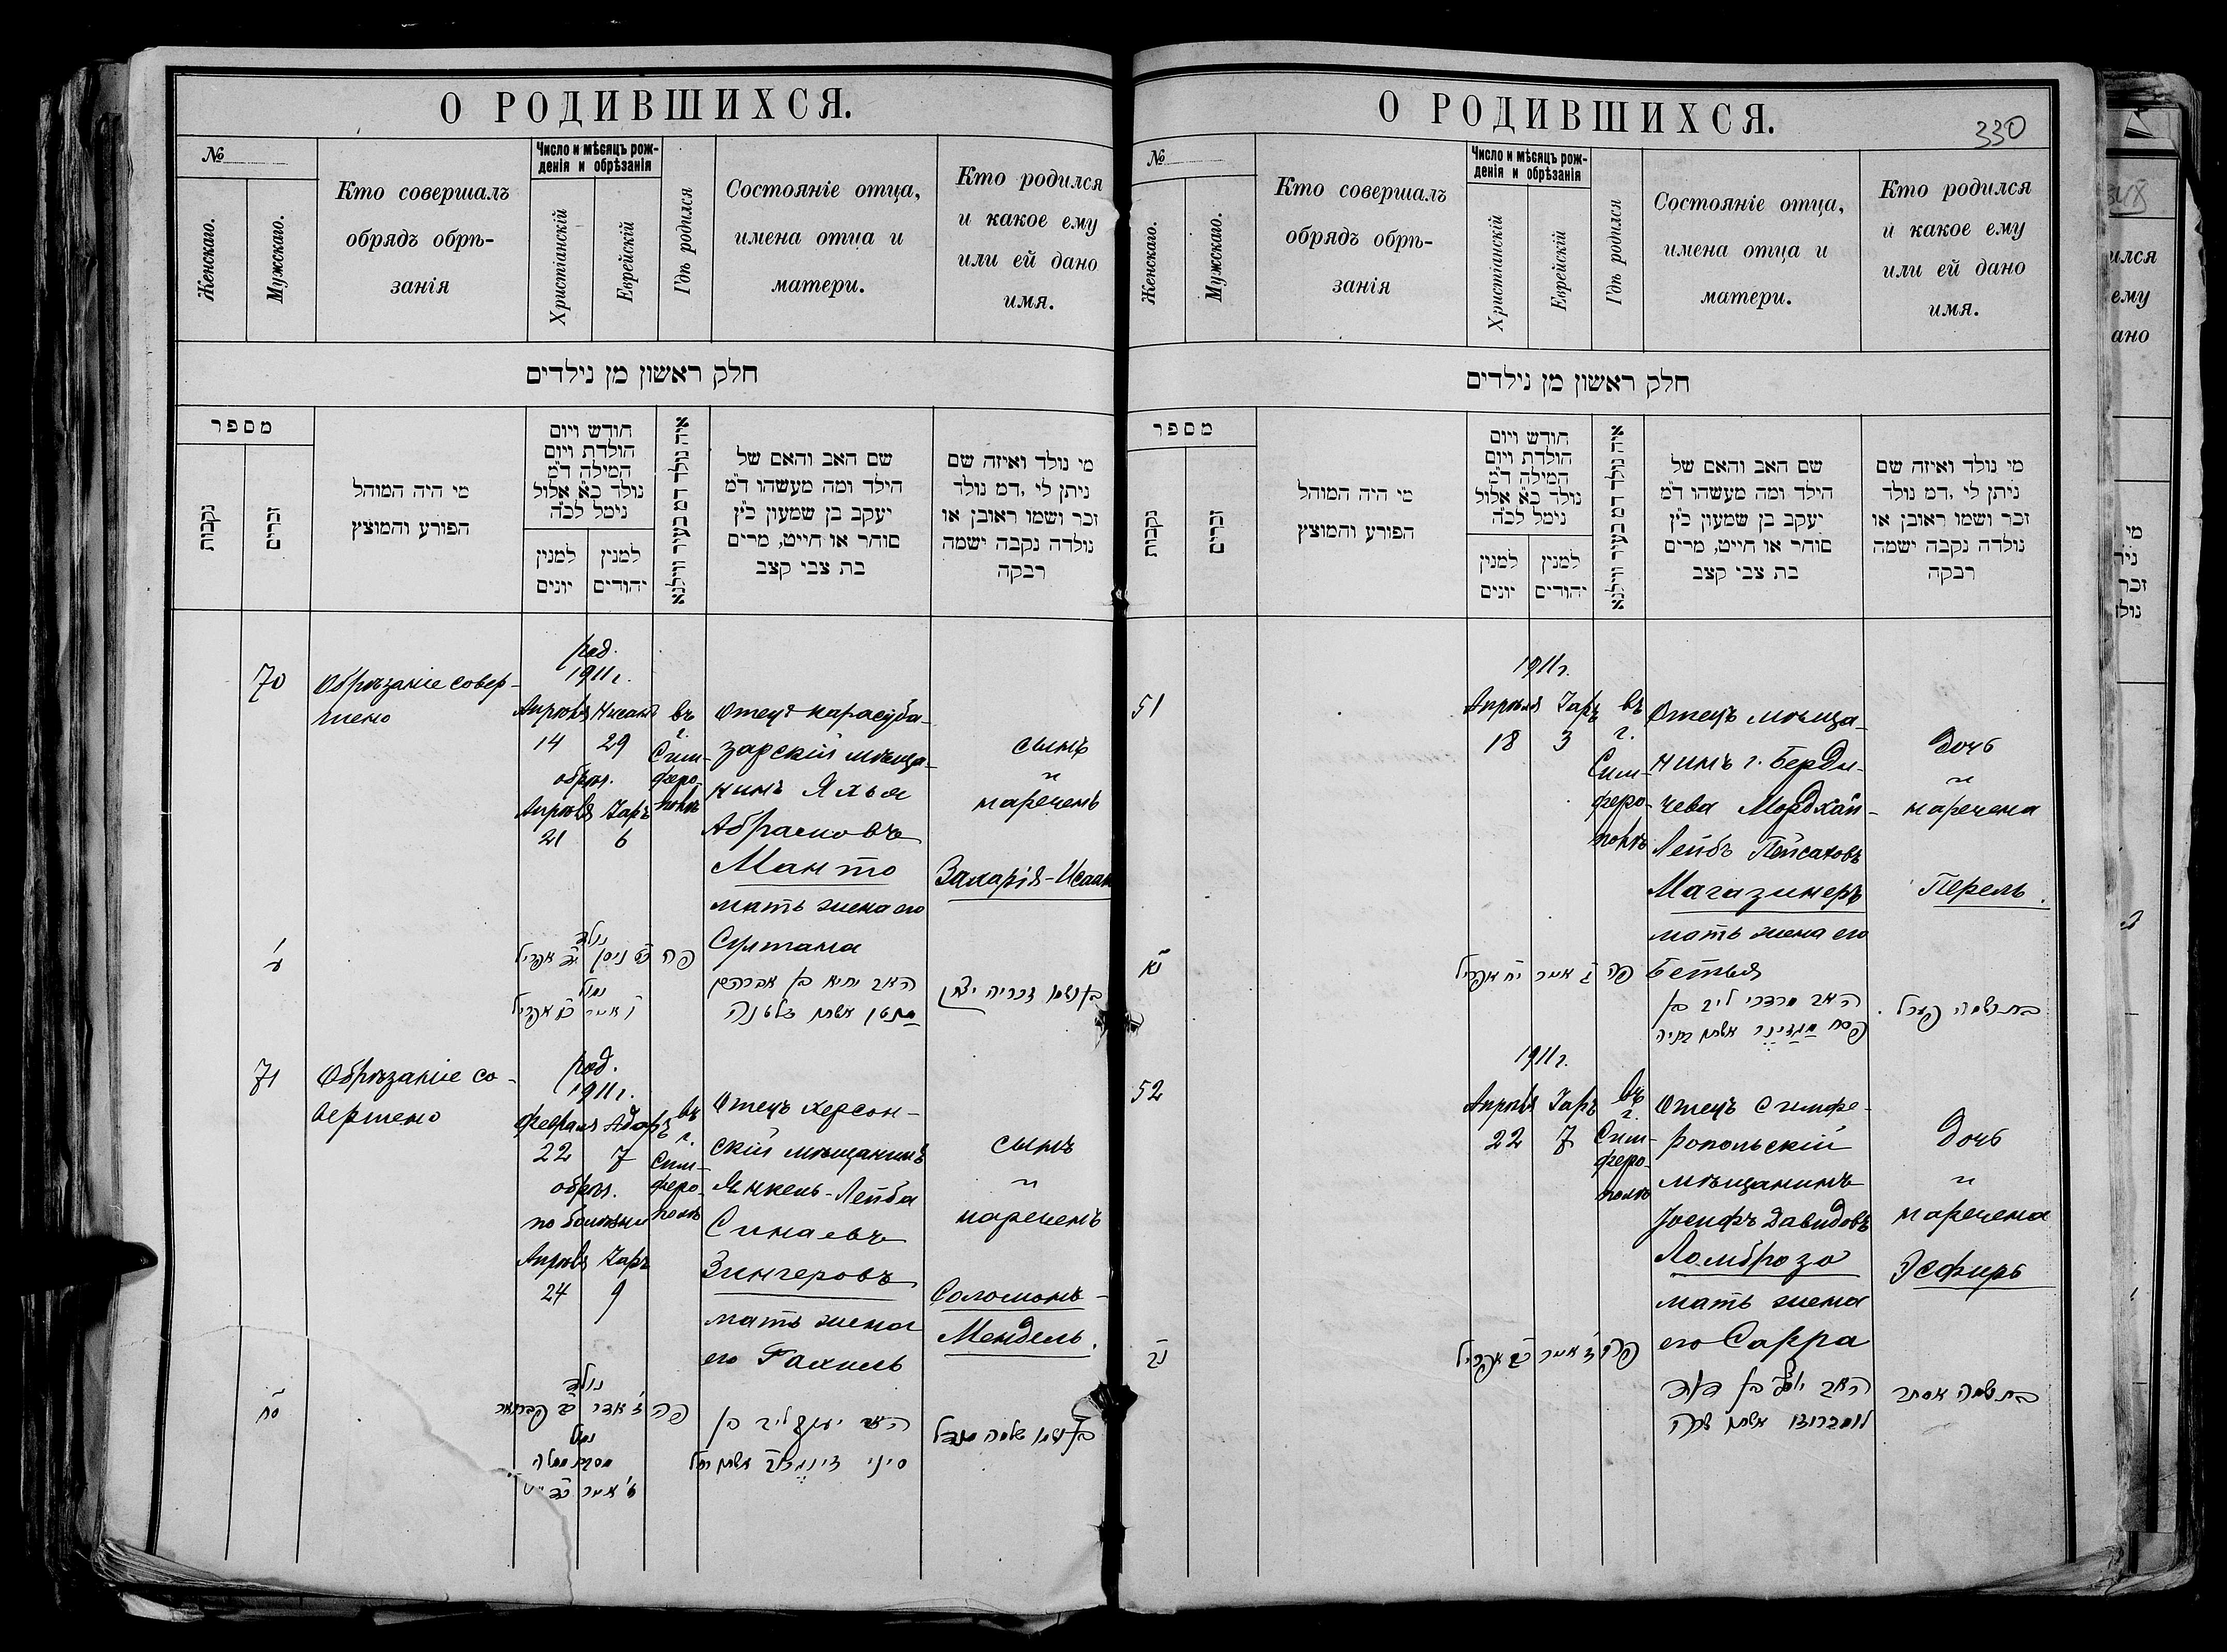 О РОДИВШИХСЯ.
№
Женскаго.
Мужскаго.
Кто совершалъ
обрядъ обрѣ-
занія
Число и мѣсяцъ рож-
денія и обрѣзанія
Христіанскій
Еврейскій
Гдѣ родился
Состояніе отца,
имена отца и
матери.
Кто родился
и какое ему
или ей дано
имя.
חלק ראשון מן נילדים
מספר
נקבות
זכרים
מי היה המוהל
הפורע והמוצץ
חודש ויום
הולדת ויום
המילה ד״מ
נולד כ״א אלול
נימל לכ״ה
למנין
יונים
למנין
יהודים
איה נולד דמ בעיר ווילנא
שם האב והאם של
הילד ומה מעשהו ד״מ
יעקב בן שמעון כ״ץ
סוחר או חייט, מרים
בת צבי קצב
מי נולד ואיזה שם
ניתן לי ,דמ נולד
זכר ושמו ראובן או
נולדה נקבה ישמה
רבקה
70
Обрѣзаніе совер-
шено
род.
1911г.
Апрѣля Нисанъ
14 29
обрѣз.
Апрѣля Іаръ
21 6
въ
г.
Сим-
феро-
полѣ
Отецъ карасуба-
зарскій мѣща-
нинъ Яхья
Абрамовъ
Манто
мать жена его
Султана
сынъ
и
нареченъ
Захарія-Исаакъ
ע
נולד
כט ניסן יד אפריל
נמול
ו אייר כא אפריל
פה
האב יחיא בן אברהם
מנטו אשתו סלטנה
בן ושמו זכריה יצחק
71
Обрѣзаніе со-
вершено
род.
1911г.
Февраля Адаръ
22 7
обрѣз.
по болѣзни
Апрѣля Іаръ
24 9
въ
г.
Сим-
феро-
полѣ
Отецъ херсон-
скій мѣщанинъ
Янкель-Лейба
Синаевъ
Зингеровъ
мать жена
его Рахиль
сынъ
и
нареченъ
Соломонъ-
Мендель.
נולד
ז אדר
נמול
ט אייר
פה
האב יעקב ליב בן
סיני זינגרוב אשתו רחל
בן ושמו שלמה מנדל
О РОДИВШИХСЯ.
330
№
Женскаго.
Мужскаго.
Кто совершалъ
обрядъ обрѣ-
занія
Число и мѣсяцъ рож-
денія и обрѣзанія
Христіанскій
Еврейскій
Гдѣ родился
Состояніе отца,
имена отца и
матери.
Кто родился
и какое ему
или ей дано
имя.
חלק ראשון מן נילדים
מספר
נקבות
זכרים
מי היה המוהל
הפורע והמוצץ
חודש ויום
הולדת ויום
המילה ד״מ
נולד כ״א אלול
נימל לכ״ה
למנין
יונים
למנין
יהודים
איה נולד דמ בעיר ווילנא
שם האב והאם של
הילד ומה מעשהו ד״מ
יעקב בן שמעון כ״ץ
סוחר או חייט, מרים
בת צבי קצב
מי נולד ואיזה שם
ניתן לי ,דמ נולד
זכר ושמו ראובן או
נולדה נקבה ישמה
רבקה
51
1911г.
Апрѣля Іаръ
18 3
въ
г.
Сим-
феро-
полѣ
Отецъ мѣща-
нинъ г. Берди-
чева Мордхай-
Лейбъ Пейсаховъ
Магазинеръ
мать жена его
Бетья
дочь
и
наречена
Перель.
נא
ג אייר יח אפריל
פה
האב מרדכי ליב בן
פסח מגזינר אשתו בתיה
בת ושמה פערל.
52
1911г.
Апрѣля Іаръ
22 7
въ
г.
Сим-
феро-
полѣ
Отецъ симфе-
ропольскій
мѣщанинъ
Іосифъ Давидовъ
Ломброзо
мать жена
его Сарра
дочь
и
наречена
Эсфирь
נב
ז אייר כב אפריל
פה
האב יוסף בן דוד
לומברוזו אשתו שרה
בת ושמה אסתר